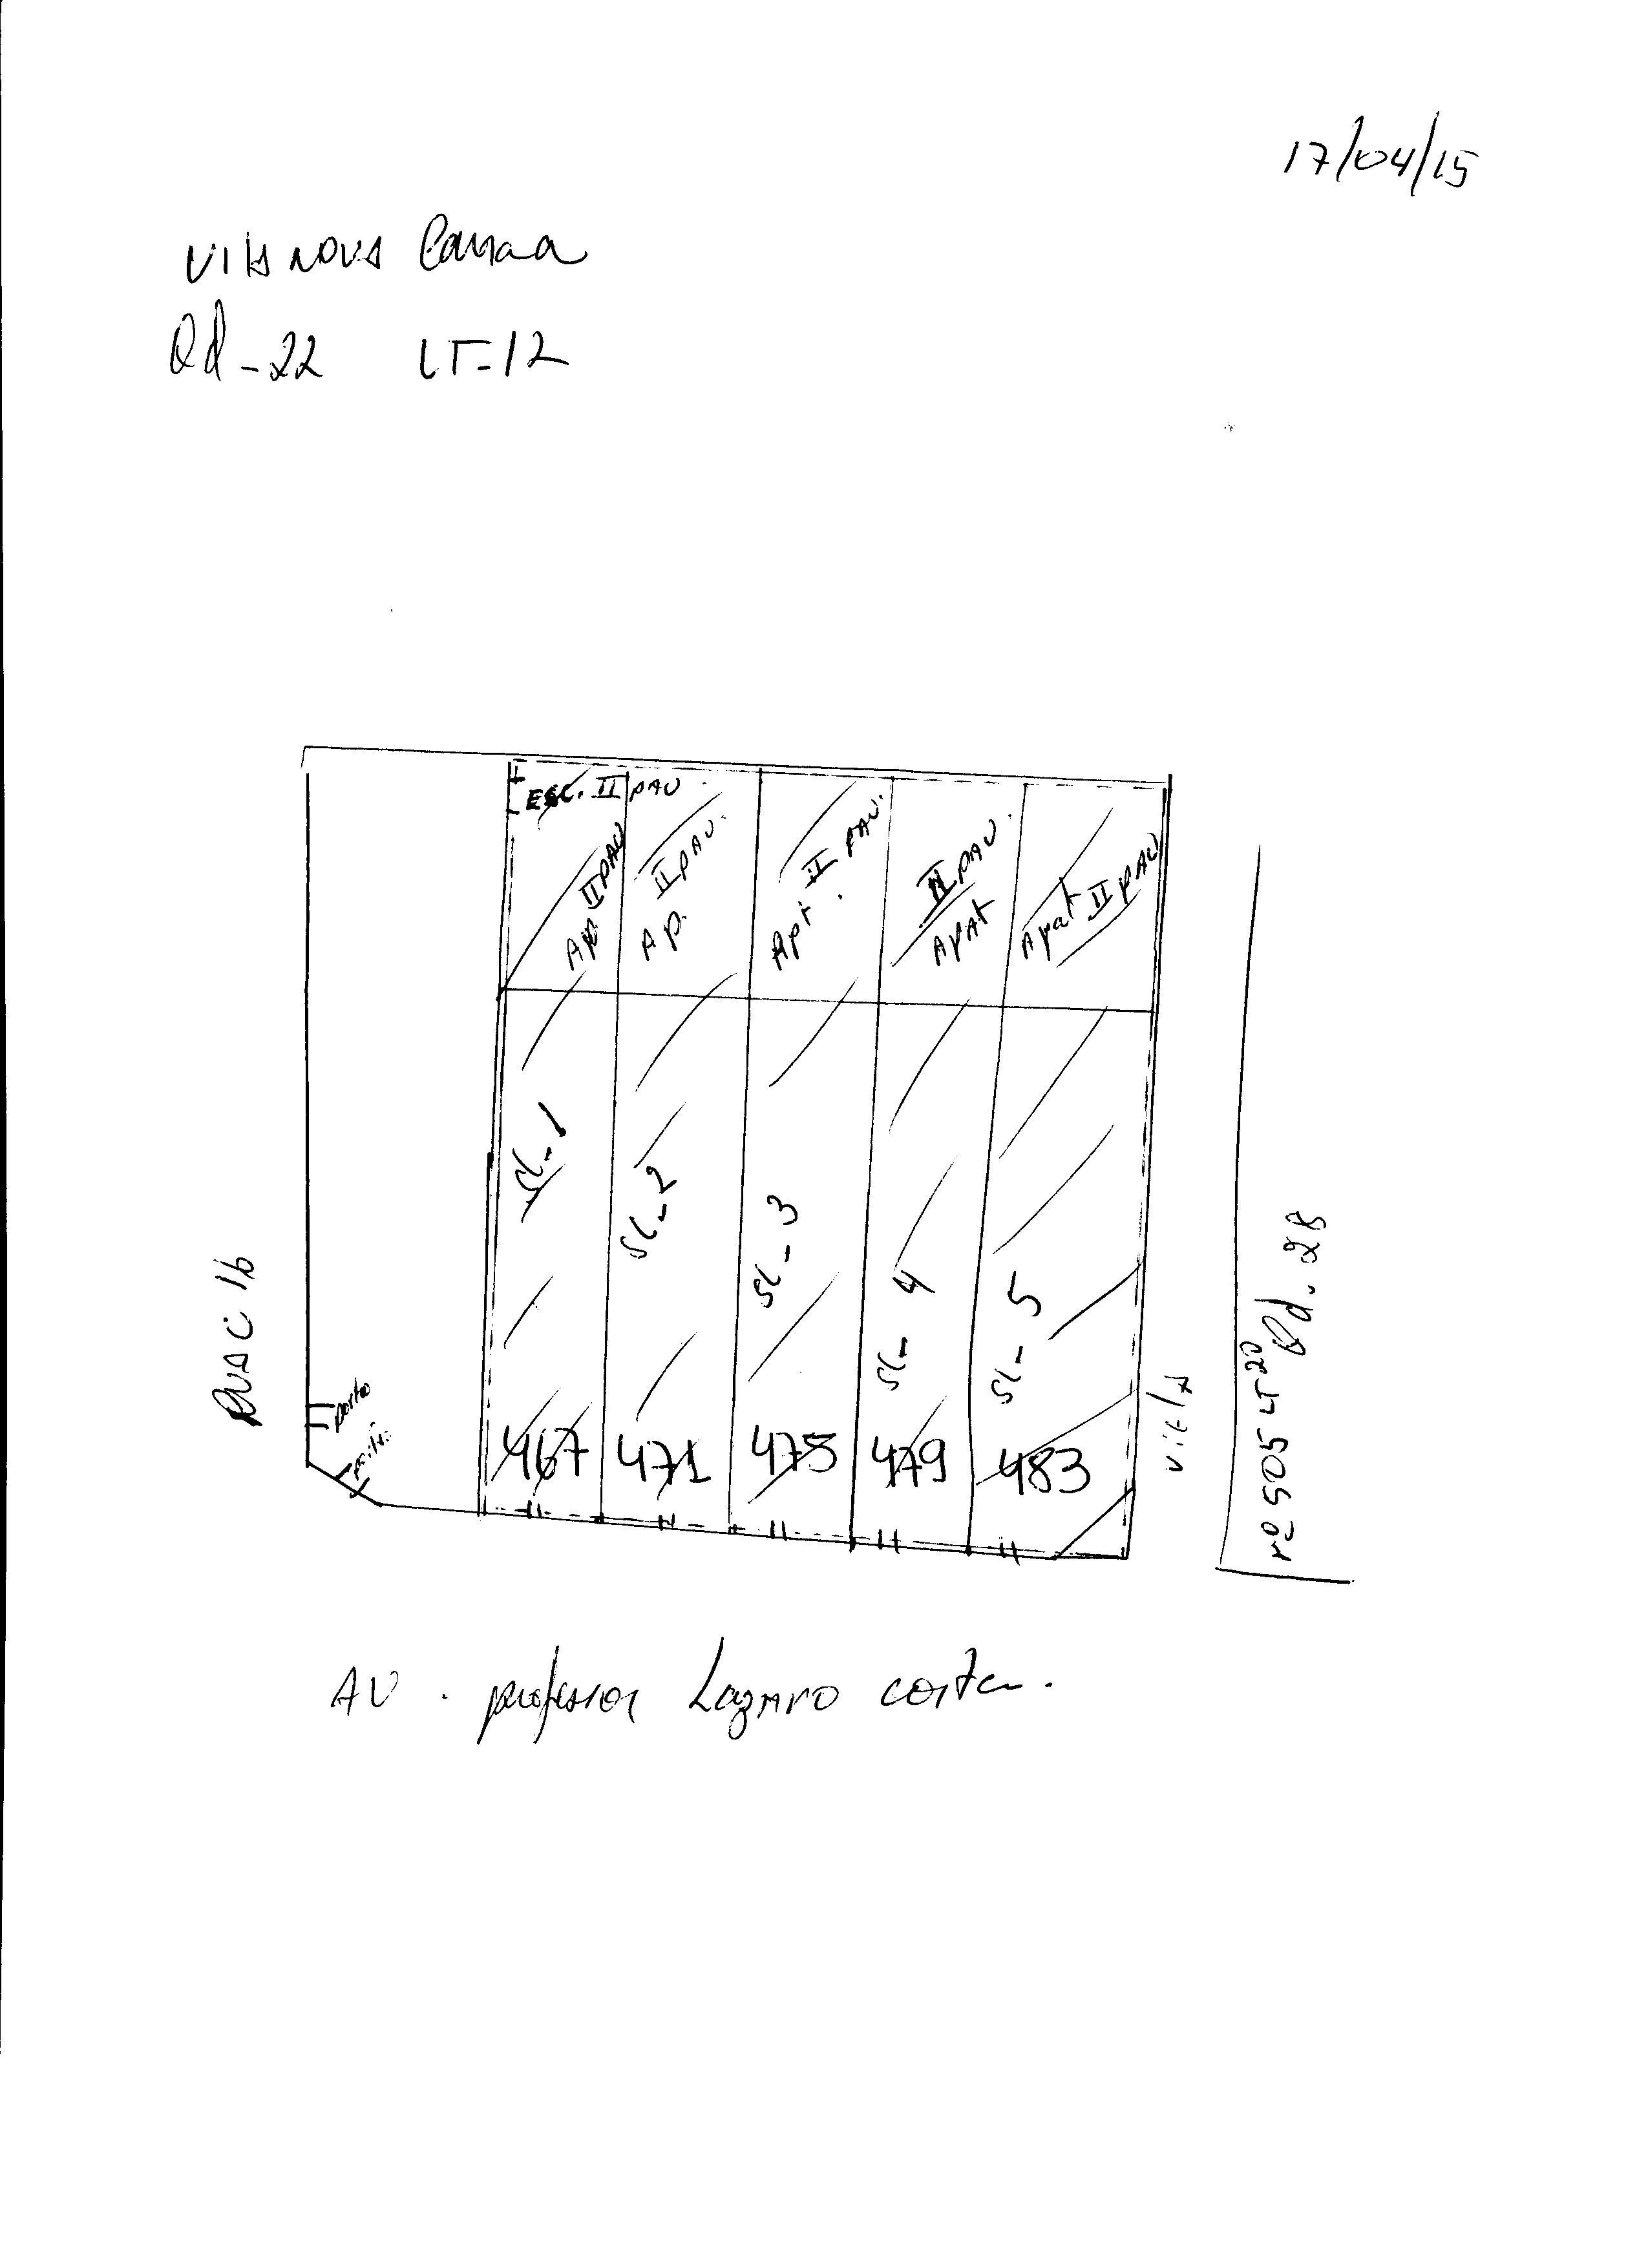 17/04/15
Vila nova Canaa
Qd-22 LT-12
ESC. II PAV
Ap. II PAV
Ap. II PAV.
Apt. II PAV.
Apat II PAV.
Apat II PAV
SL-1
SL-2
SL-3
SL-4
SL-5
RUA C 16
porta
467 471 475 479 483
viela
nº 505 LT 20 Qd. 28
AV. professor Lazaro costa.